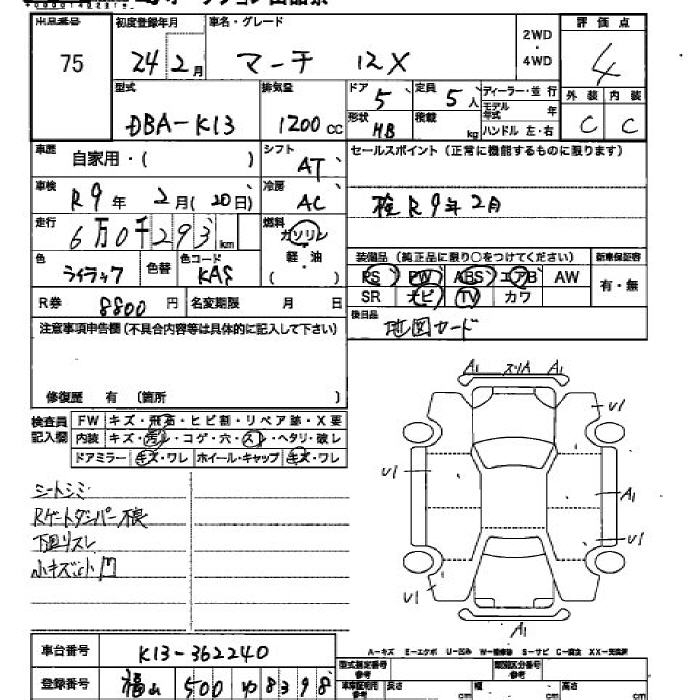 出品番号 初度登録年月 車名・グレード 2WD・4WD 評価点
75 24年2月 マーチ 12X 4
型式 排気量 ドア 定員 ディーラー・並行 外装 内装
DBA-K13 1200cc 5 5人 モデル年式 年 C C
形状 HB 積載 kg ハンドル 左・右
車歴 自家用・( ) シフト AT セールスポイント(正常に機能するものに限ります)
車検 R9年2月(20日) 冷房 AC 検R9年2月
走行 6万0千293km 燃料 ガソリン・軽・油
装備品(純正品に限り○をつけてください) 新車保証書
色 ライラック 色替 色コード KAS PS PW ABS エアB AW 有・無
SR ナビ TV カワ
R券 8800円 名変期限 月 日
後日品 地図カード
注意事項申告欄(不具合内容等は具体的に記入して下さい)
修復歴 有(箇所 )
検査員記入欄 FW キズ・飛石・ヒビ割・リペア跡・X要
内装 キズ・汚レ・コゲ・穴・スレ・ヘタリ・破レ
ドアミラー キズ・ワレ ホイール・キャップ キズ・ワレ
A1 スリA A1
U1
U1
A1
U1
U1
A1
シートシミ
Rゲートダンパー不良
下回リスレ
小キズ小凹
A-キズ E-エクボ U-凹み W-補修跡 S-サビ C-腐食 XX-交換済
車台番号 K13-362240
型式指定番号 参考 類別区分番号 参考
登録番号 福山 500 ゆ 8398
車庫証明用 参考 長さ cm 幅 cm 高さ cm